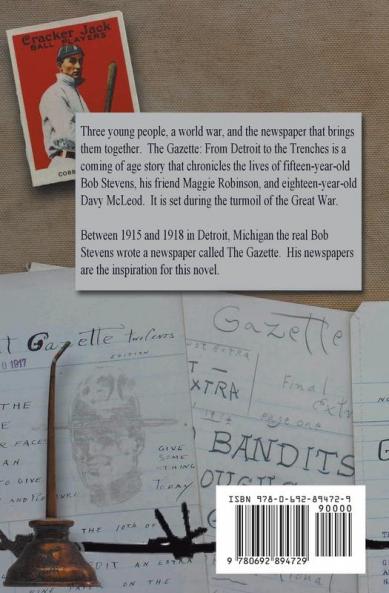 Cracker Jack
BALL PLAYERS
COBB
Three young people, a world war, and the newspaper that brings
them together. The Gazette: From Detroit to the Trenches is a
coming of age story that chronicles the lives of fifteen-year-old
Bob Stevens, his friend Maggie Robinson, and eighteen-year-old
Davy McLeod. It is set during the turmoil of the Great War.
Between 1915 and 1918 in Detroit, Michigan the real Bob
Stevens wrote a newspaper called The Gazette. His newspapers
are the inspiration for this novel.
Gazette Two Cents
EDITION
1917
THE
GIVE
SOME
THING
TODAY
THE 10TH OF
AN EXTRA
ON THE
Gazette
EXTRA
Final
Extra
page one
BANDITS
ISBN 978-0-692-89472-9
90000
9 780692 894729